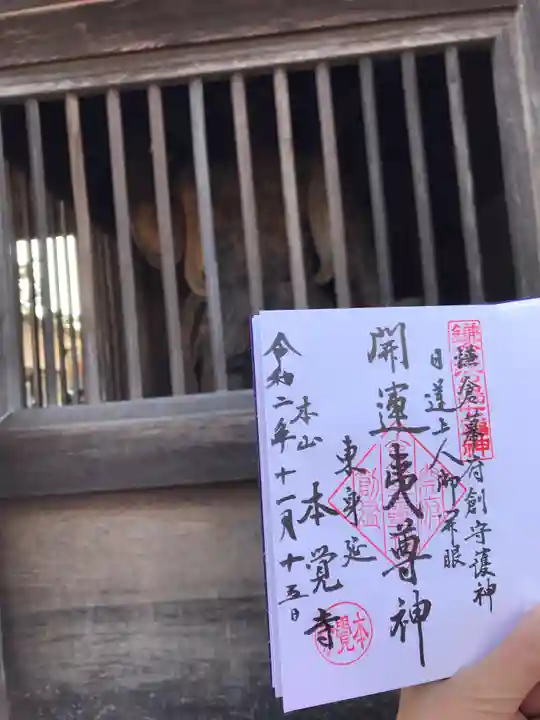 鎌倉幕府創守護神
日蓮上人御開眼
開運夷尊神
東身延
本山
本覚寺
令和二年十一月十五日